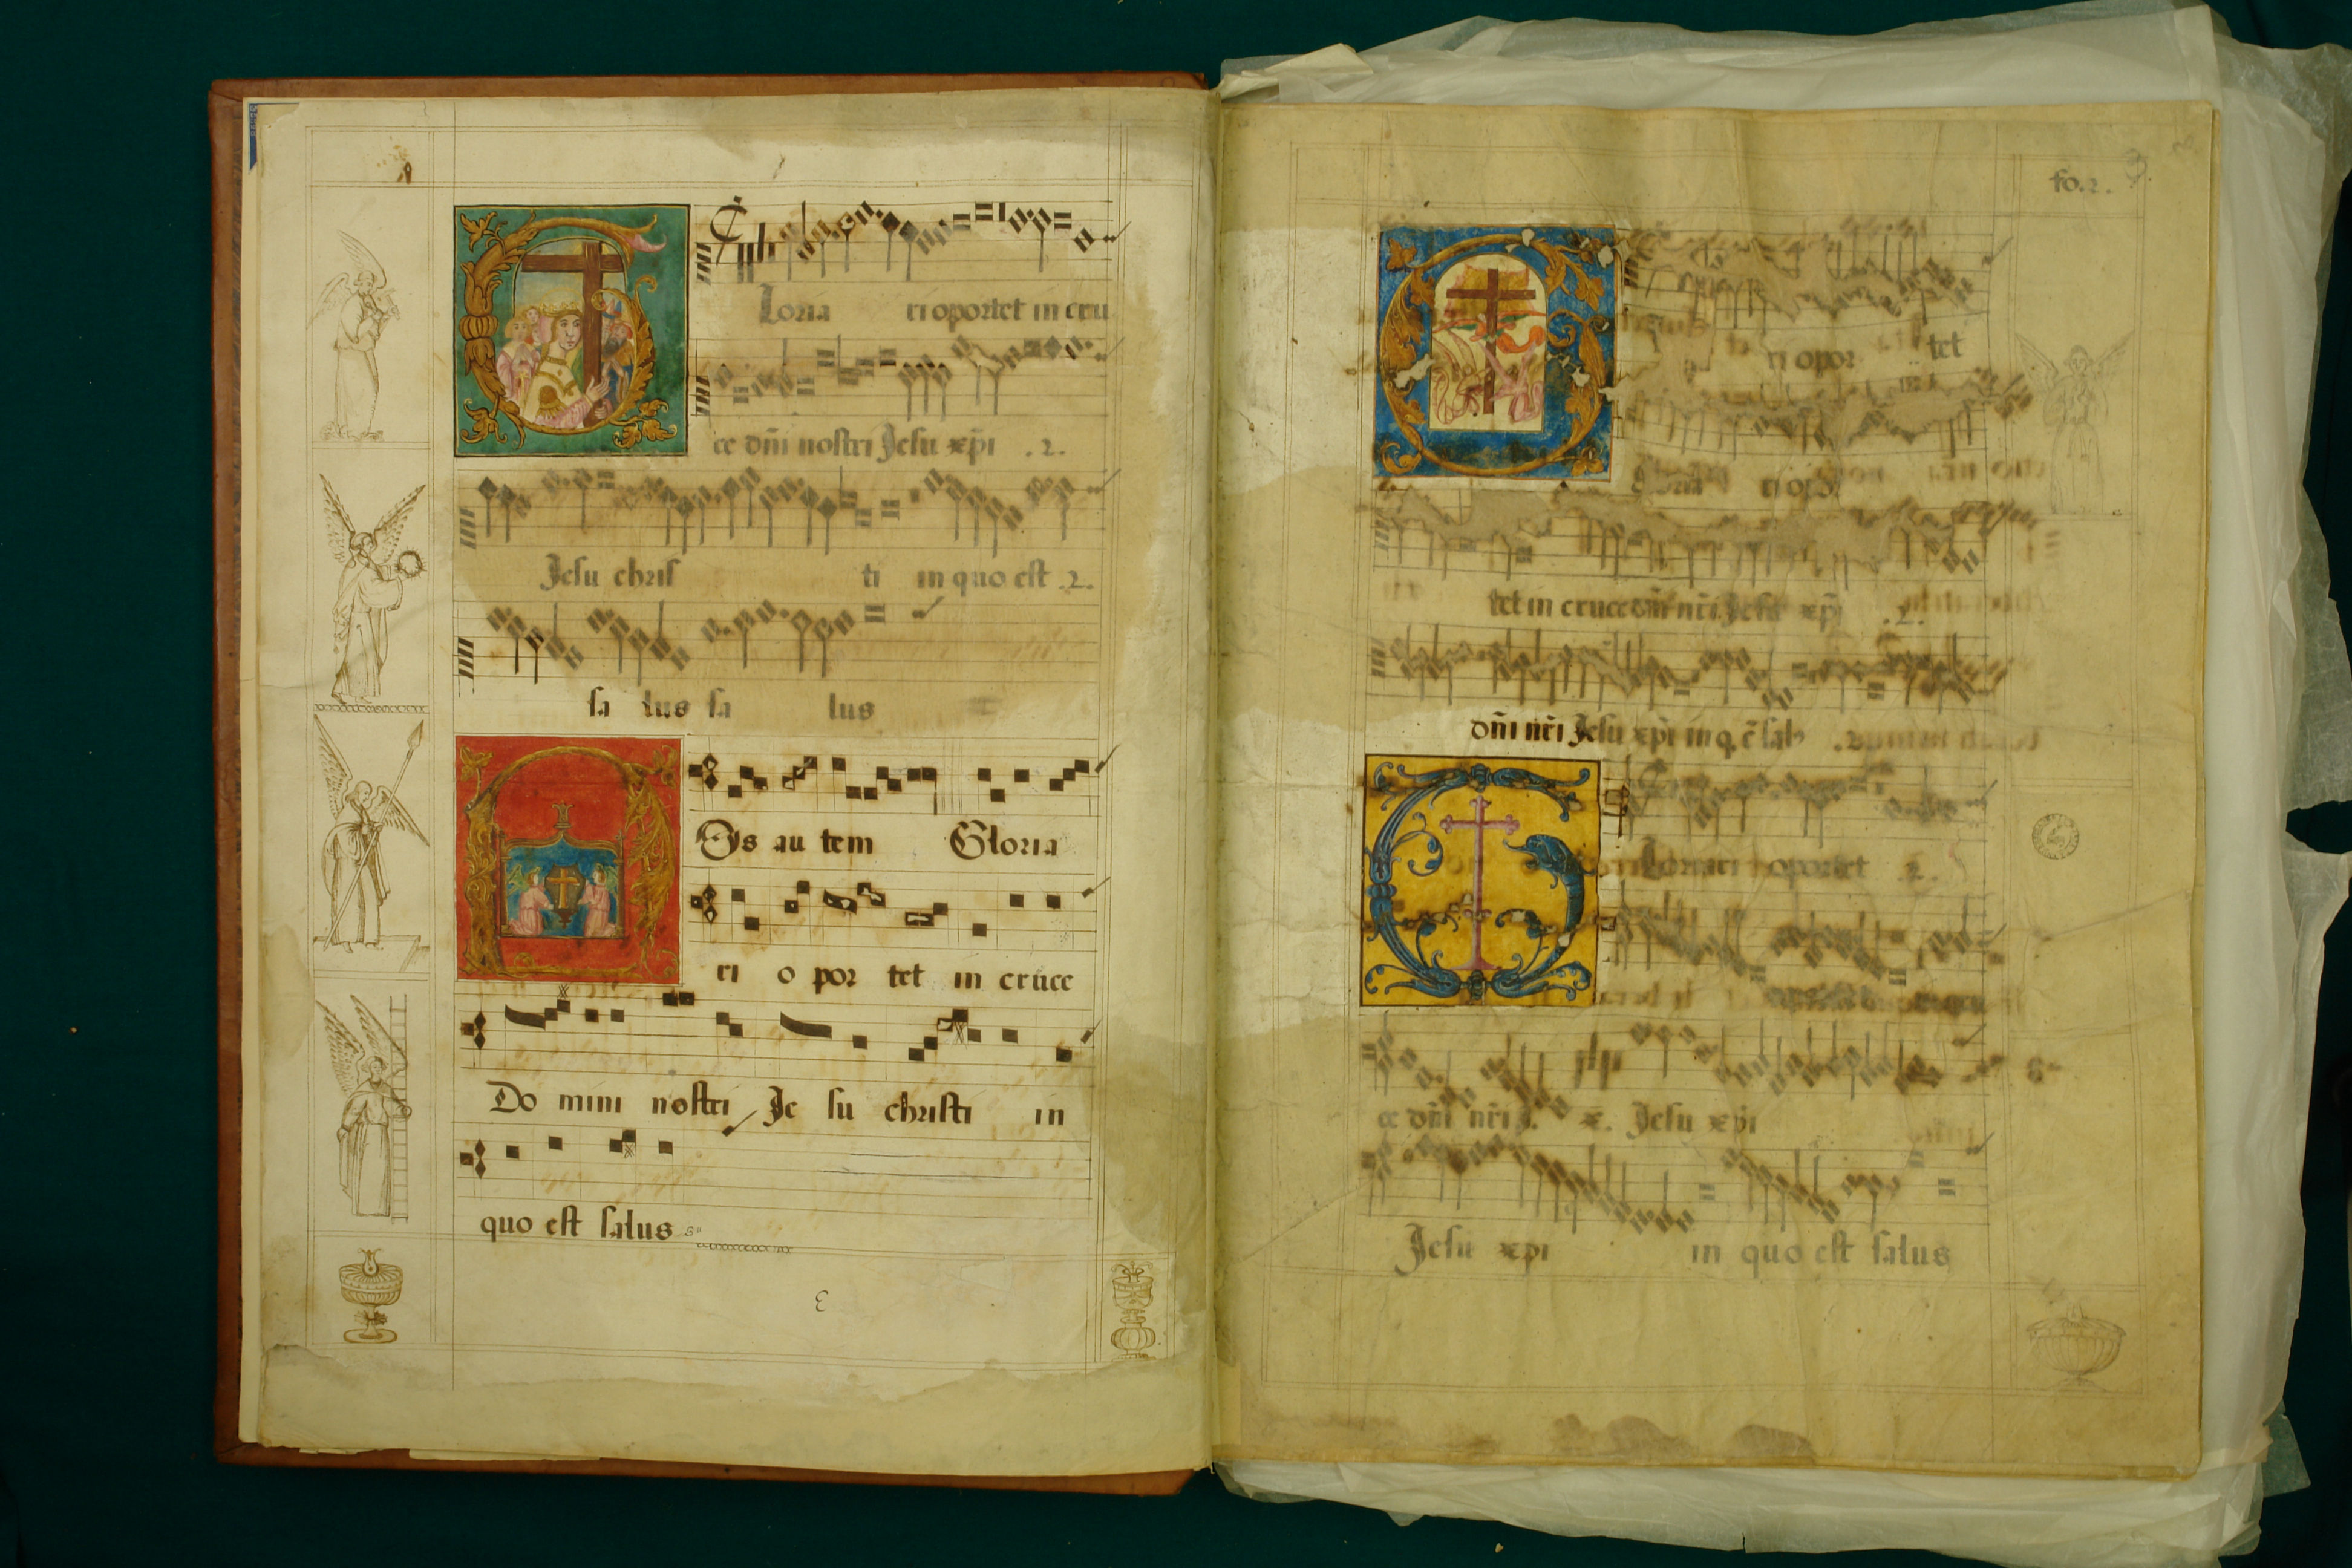 Loria ri oportet in cru
ce dñi nostri Jesu xp̄i .2.
Jesu chris ti in quo est .2.
sa lus sa lus
Os au tem Gloria
ri o por tet in cruce
Do mini nostri Je su christi in
quo est salus
fo. 2.
ri opor tet
loria ri opor
tet in cruce dñi nr̄i Jesu xp̄i .2.
dñi nr̄i Jesu xp̄i in q̄ ē sal
Loriari oportet .2.
ce dñi nr̄i J. x. Jesu xp̄i
Jesu xpi in quo est salus